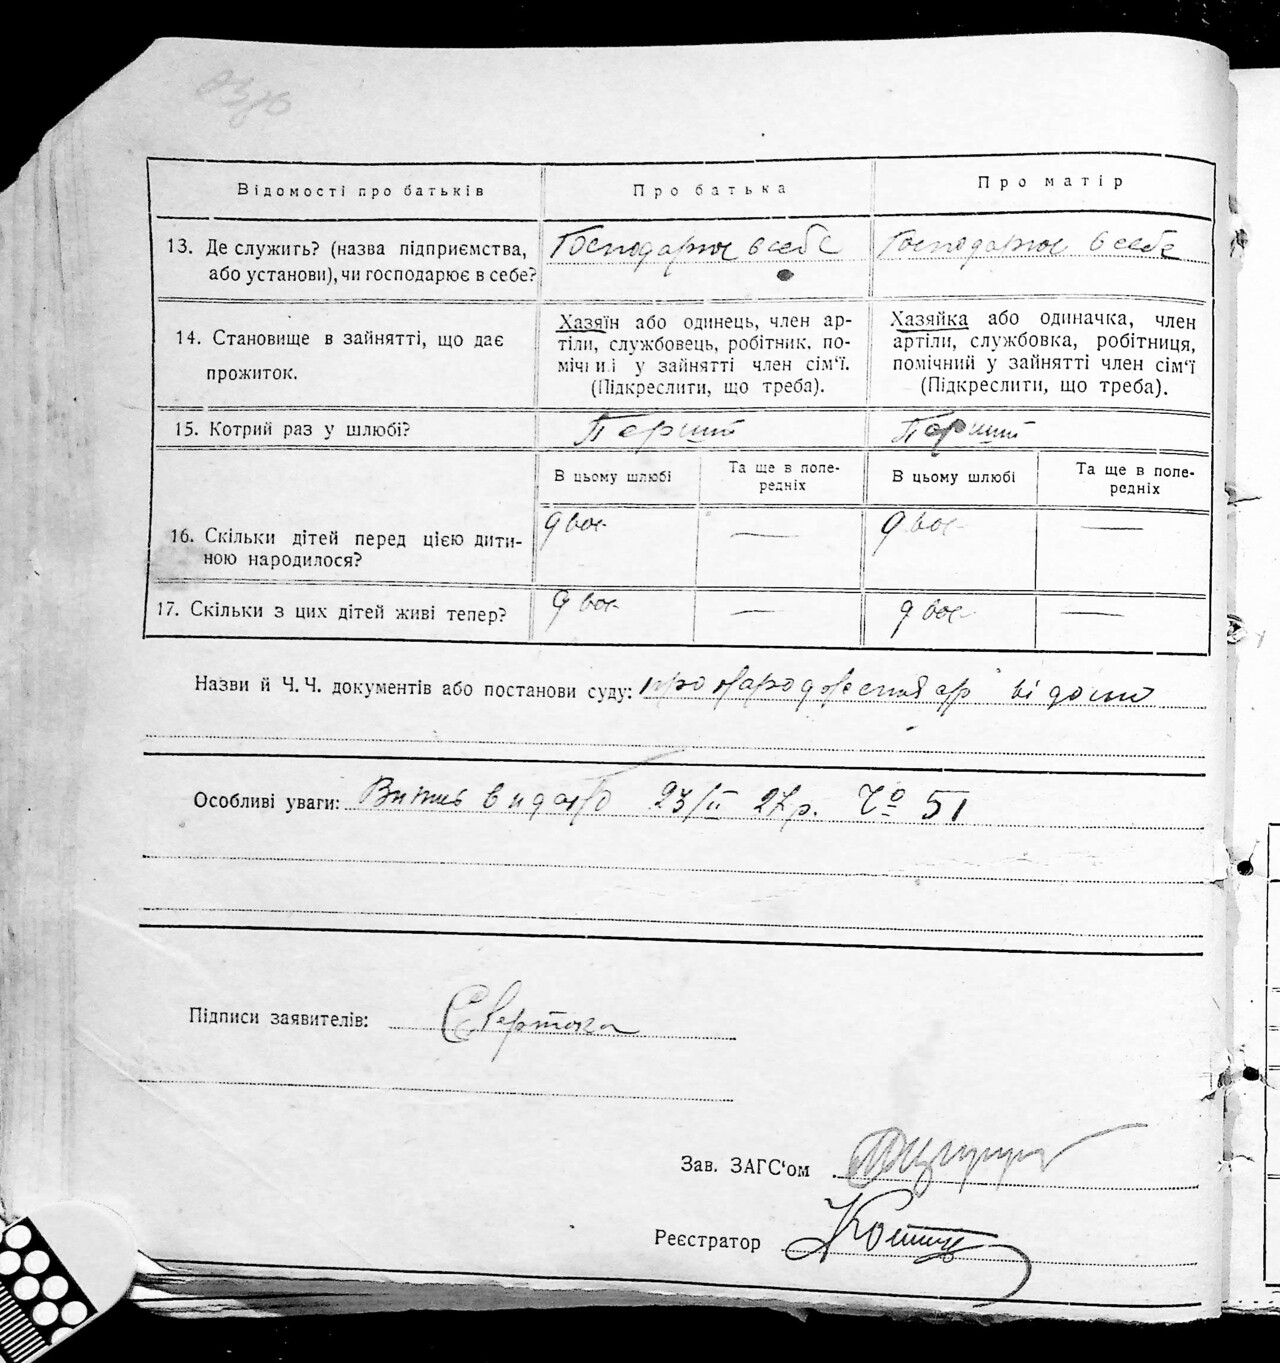 Відомості про батьків
Про батька
Про матір
13. Де служить? (назва підприємства,
або установи), чи господарює в себе?
Господарює в себе
Господарює в себе
14. Становище в зайнятті, що дає
прожиток.
Хазяїн або одинець, член ар-
тіли, службовець, робітник, по-
мічний у зайнятті член сім‘ї.
(Підкреслити, що треба).
Хазяйка або одиначка, член
артіли, службовка, робітниця,
помічний у зайнятті член сім‘ї
(Підкреслити, що треба).
15. Котрий раз у шлюбі?
Перший
Перший
В цьому шлюбі
Та ще в попе-
редніх
В цьому шлюбі
Та ще в попе-
редніх
16. Скільки дітей перед цією дити-
ною народилося?
двоє
—
двоє
—
17. Скільки з цих дітей живі тепер?
двоє
—
двоє
—
Назви й Ч.Ч. документів або постанови суду: про народження
Особливі уваги: Витяг видано 23/II 27р. Ч° 51
Підписи заявителів:
Зав. ЗАГС‘ом
Реєстратор